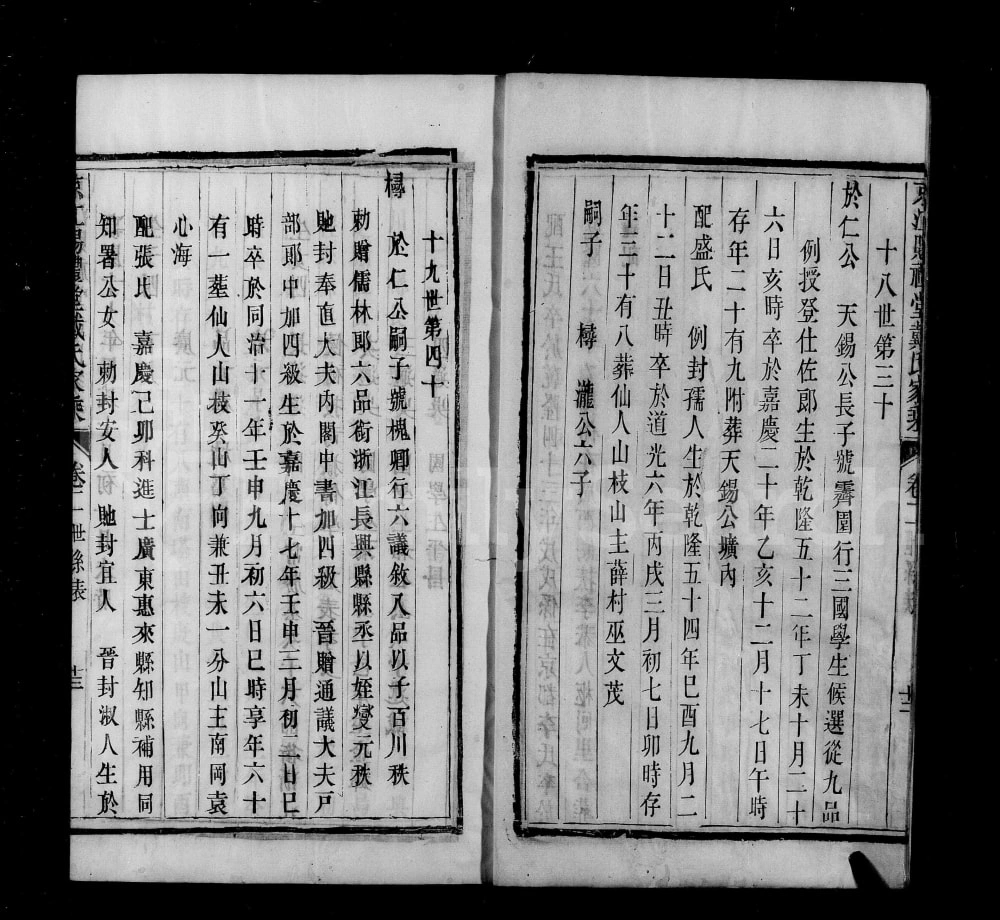 京江賜禮堂戴氏家乘 卷二
十八世第三十
於仁公 天錫公長子號霽園行三國學生候選從九品
例授登仕佐郎生於乾隆五十二年丁未十月二十
六日亥時卒於嘉慶二十年乙亥十二月十七日午時
存年二十有九附葬天錫公壙內
配盛氏 例封孺人生於乾隆五十四年巳酉九月二
十二日丑時卒於道光六年丙戌三月初七日卯時存
年三十有八葬仙人山枝山主薛村巫文茂
嗣子 樽 瀧公六子
十九世第四十
樽 於仁公嗣子號槐卿行六議敘八品以子百川秩
勅贈儒林郎六品銜浙江長興縣縣丞以姪燮元秩
貤封奉直大夫內閣中書加四級 晉贈通議大夫戸
部郎中加四級生於嘉慶十七年壬申三月初二日巳
時卒於同治十一年壬申九月初六日巳時享年六十
有一葬仙人山枝癸山丁向兼丑未一分山主南岡袁
心海
配張氏 嘉慶己卯科進士廣東惠來縣知縣補用同
知署公女勅封安人貤封宜人 晉封淑人生於
京江賜禮堂戴氏家乘 卷二 世系表 十三